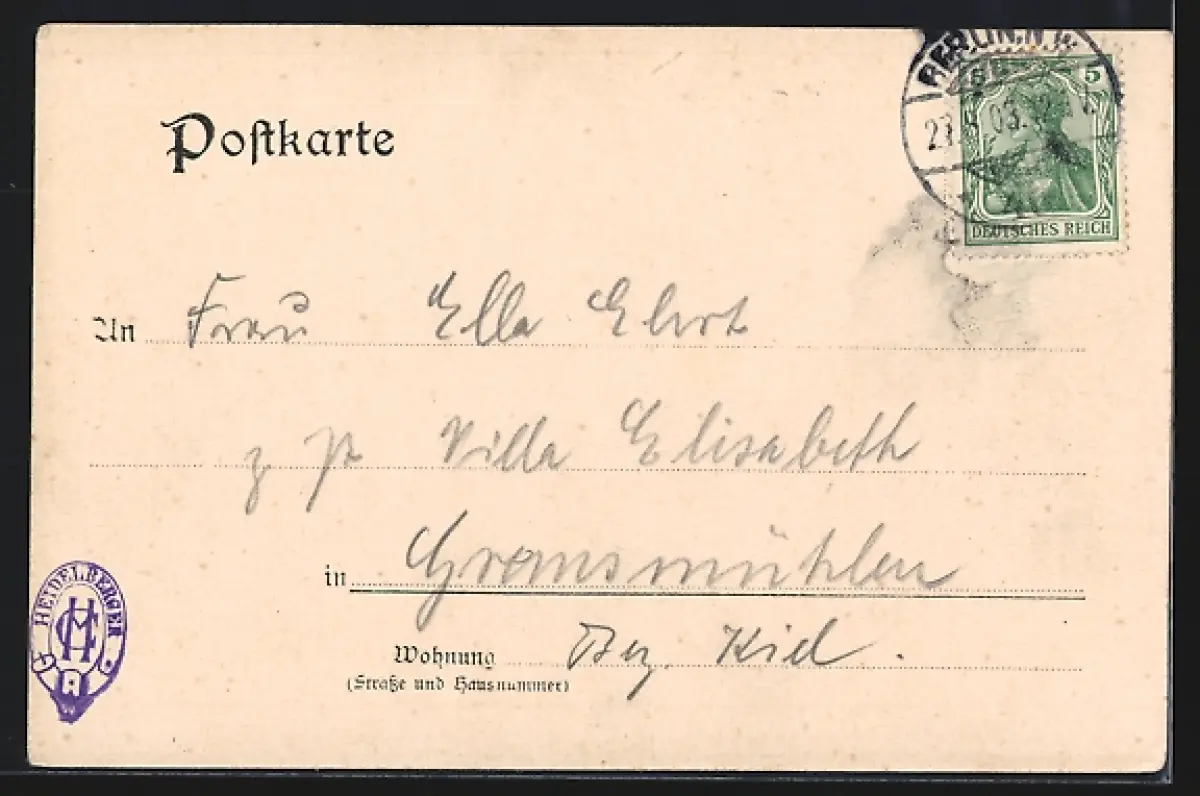 BERLIN.N.W.
5
DEUTSCHES REICH
Postkarte
An Frau Ella Ebert
z Zt Villa Elisabeth
in Gremsmühlen
Bez. Kiel.
Wohnung
(Straße und Hausnummer)
HEIDELBERGER